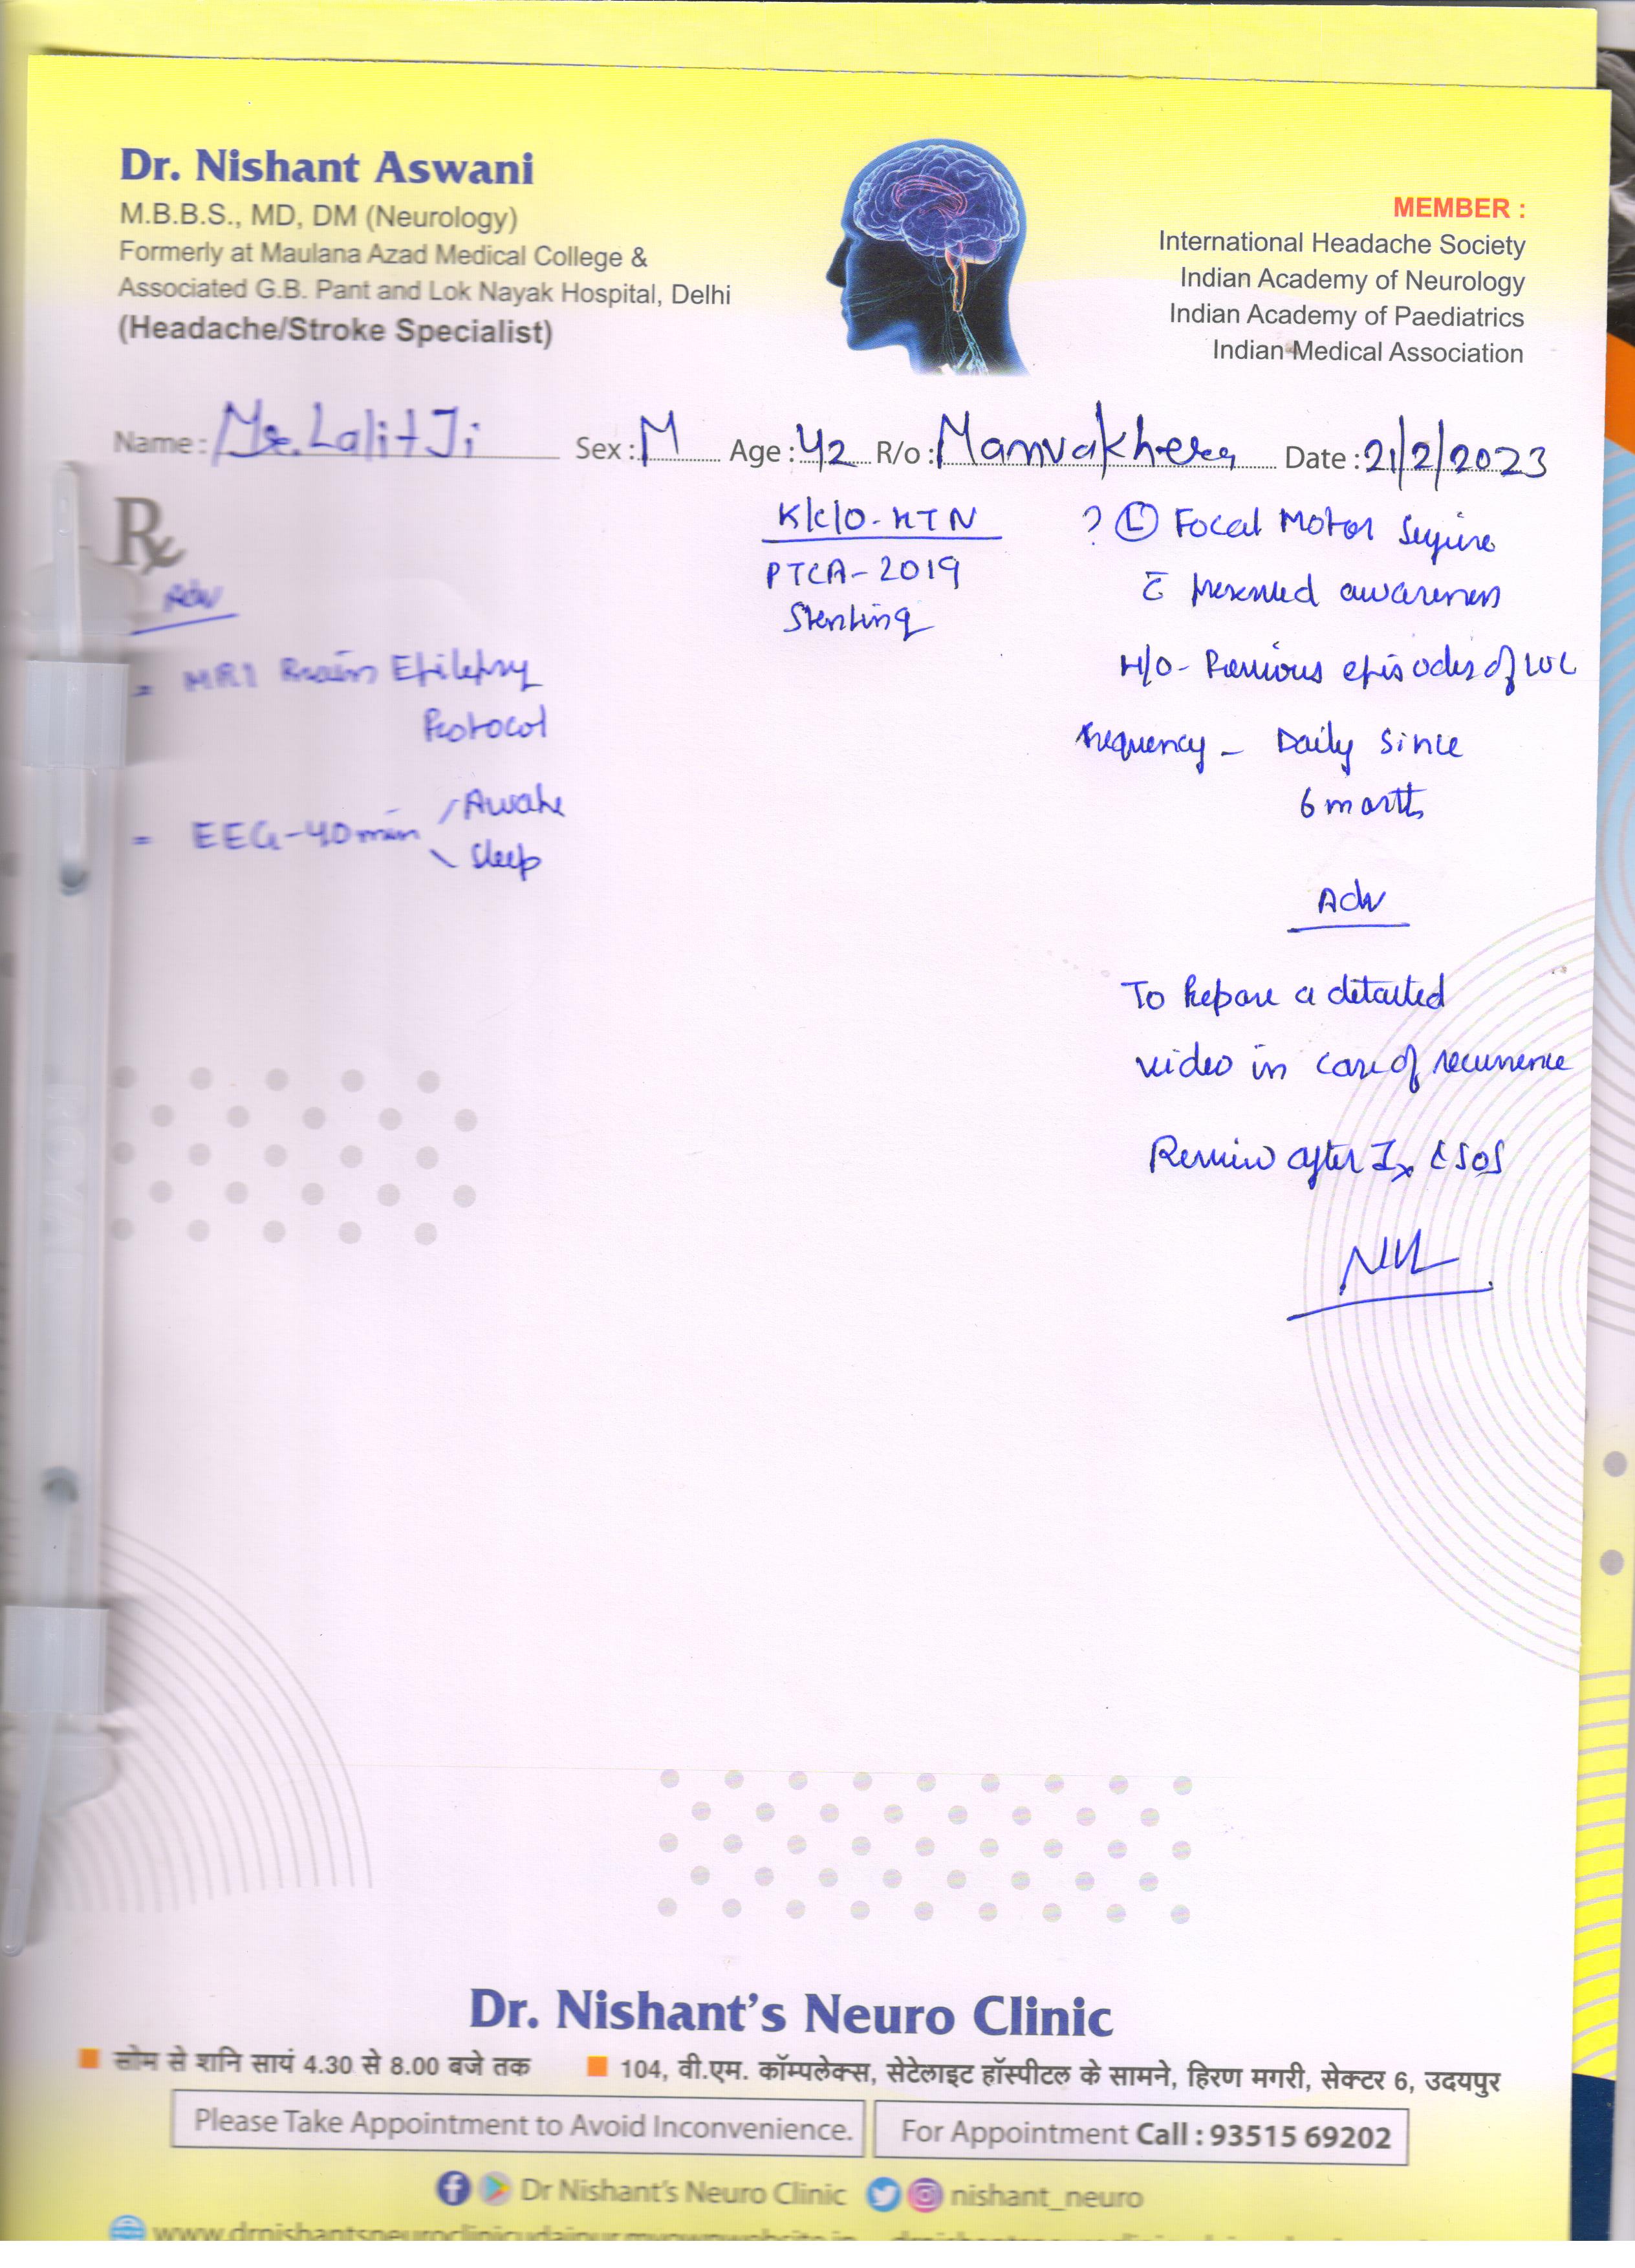 Dr. Nishant Aswani
M.B.B.S., MD, DM (Neurology)
Formerly at Maulana Azad Medical College &
Associated G.B. Pant and Lok Nayak Hospital, Delhi
(Headache/Stroke Specialist)
MEMBER :
International Headache Society
Indian Academy of Neurology
Indian Academy of Paediatrics
Indian Medical Association
Name : Mr. Lalit Ji Sex : M Age : 42 R/o : Manvakhera Date : 21/2/2023
Rx
Adv
= MRI Brain Epilepsy
Protocol
= EEG-40min Awake
Sleep
K/c/o-HTN
PTCA-2019
Stenting
? Ⓛ Focal Motor Seizure
c̄ preserved awareness
H/O- Previous episodes of LOC
frequency - Daily since
6 month
Adv
To Prepare a detailed
video in case of recurrence
Review after Ix & SOS
Dr. Nishant's Neuro Clinic
सोम से शनि सायं 4.30 से 8.00 बजे तक
104, वी.एम. कॉम्पलेक्स, सेटेलाइट हॉस्पीटल के सामने, हिरण मगरी, सेक्टर 6, उदयपुर
Please Take Appointment to Avoid Inconvenience.
For Appointment Call : 93515 69202
Dr Nishant's Neuro Clinic nishant_neuro